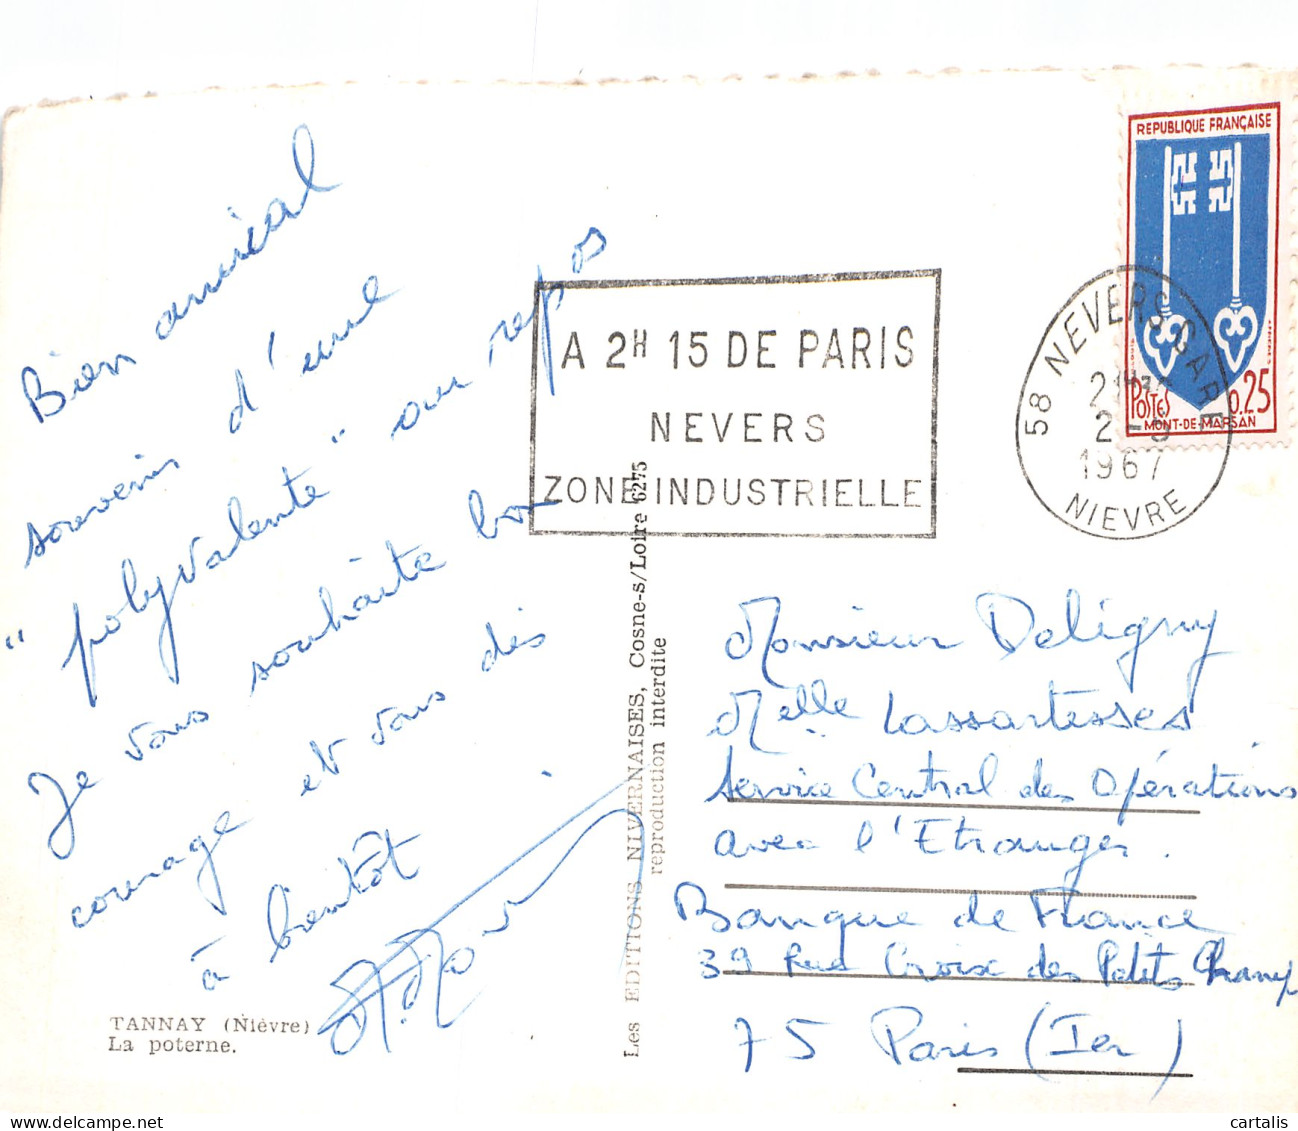 Bien amical
souvenir d'une
"polyvalente" au repos
Je vous souhaite bon
courage et vous dis
à bientôt
TANNAY (Nièvre)
La poterne.
Les EDITIONS NIVERNAISES, Cosne-s/Loire 6275
reproduction interdite
A 2H 15 DE PARIS
NEVERS
ZONE INDUSTRIELLE
58 NEVERS GARE
1967
NIEVRE
REPUBLIQUE FRANÇAISE
POSTES 0,25
MONT-DE-MARSAN
Monsieur Deligny
Melle Lassartesses
Service Central des Opérations
avec l'Etranger.
Banque de France
39 Rue Croix des Petits Champs
75 Paris (Ier)
cartalis